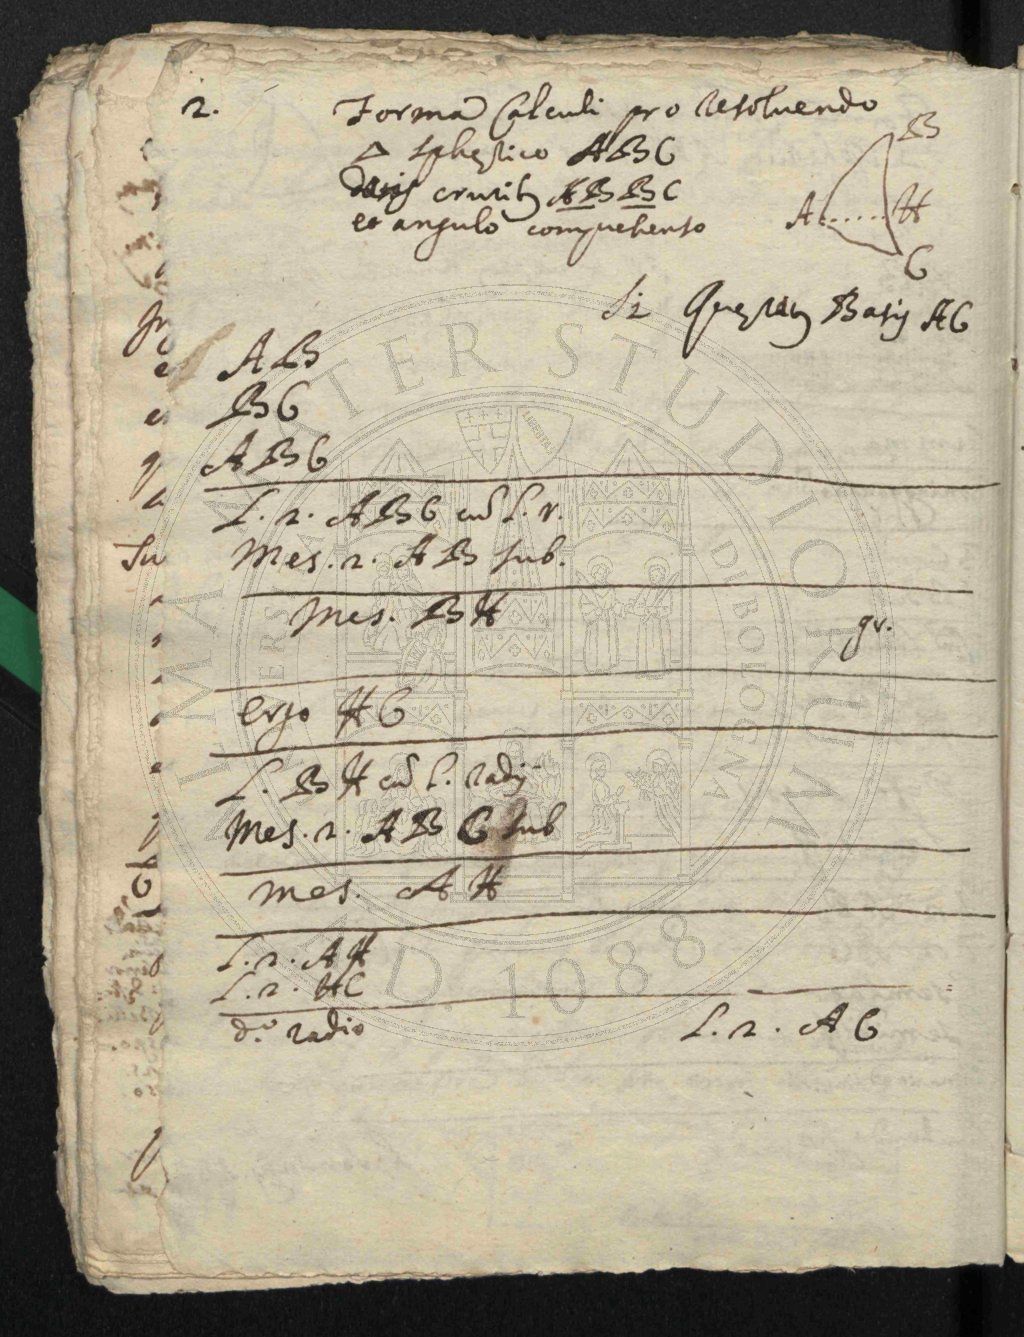 2. Forma Calculi pro resoluendo
△ spherico ABC
Datis cruribus AB BC
et angulo comprehenso
B
A H
C
Si Queratur Basis AC
AB
BC
ABC
L. 2. ABC cum L. r.
Mes. 2. AB sub.
Mes. BH gr.
ergo HC
L. BH cum L. radij
Mes. 2. ABC sub
mes. AH
L. 2. AH
L. 2. HC
d.º radio L. 2. AC
ALMA MATER STUDIORUM
A.D. 1088